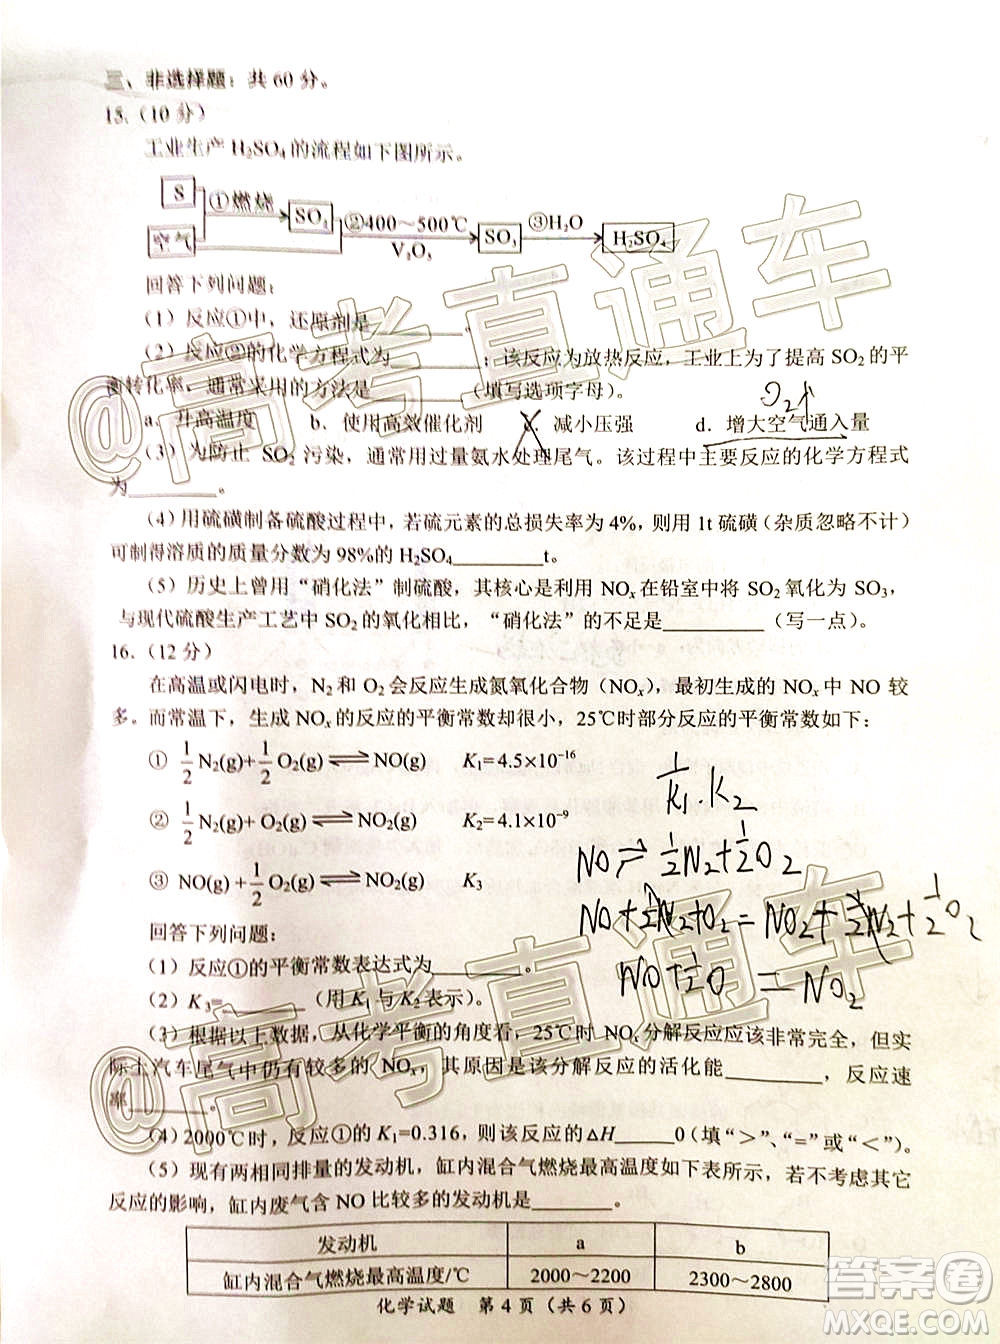 三、非选择题：共 60 分。
15.（10 分）
工业生产 H₂SO₄ 的流程如下图所示。
S
空气
①燃烧
SO₂
②400～500℃
V₂O₅
SO₃
③H₂O
H₂SO₄
回答下列问题：
（1）反应①中，还原剂是________。
（2）反应②的化学方程式为________；该反应为放热反应，工业上为了提高 SO₂ 的平
衡转化率，通常采用的方法是________（填写选项字母）。
O₂↑
a．升高温度 b．使用高效催化剂 c．减小压强 d．增大空气通入量
（3）为防止 SO₂ 污染，通常用过量氨水处理尾气。该过程中主要反应的化学方程式
为________。
（4）用硫磺制备硫酸过程中，若硫元素的总损失率为 4%，则用 1t 硫磺（杂质忽略不计）
可制得溶质的质量分数为 98%的 H₂SO₄________t。
（5）历史上曾用“硝化法”制硫酸，其核心是利用 NOₓ 在铅室中将 SO₂ 氧化为 SO₃，
与现代硫酸生产工艺中 SO₂ 的氧化相比，“硝化法”的不足是________（写一点）。
16.（12 分）
在高温或闪电时，N₂ 和 O₂ 会反应生成氮氧化合物（NOₓ），最初生成的 NOₓ 中 NO 较
多。而常温下，生成 NOₓ 的反应的平衡常数却很小，25℃时部分反应的平衡常数如下：
① 1/2 N₂(g)+1/2 O₂(g)⇌NO(g) K₁=4.5×10⁻¹⁶
1/K₁·K₂
② 1/2 N₂(g)+ O₂(g)⇌NO₂(g) K₂=4.1×10⁻⁹
NO⇌1/2N₂+1/2O₂
③ NO(g) +1/2 O₂(g)⇌NO₂(g) K₃
NO+1/2N₂+O₂=NO₂+1/2N₂+1/2O₂
回答下列问题：
NO+1/2O=NO₂
（1）反应①的平衡常数表达式为________。
（2）K₃=________（用 K₁与 K₂表示）。
（3）根据以上数据，从化学平衡的角度看，25℃时 NOₓ分解反应应该非常完全，但实
际上汽车尾气中仍有较多的 NOₓ，其原因是该分解反应的活化能________，反应速
率________。
（4）2000℃时，反应①的 K₁=0.316，则该反应的△H______0（填“＞”、“=”或“＜”）。
（5）现有两相同排量的发动机，缸内混合气燃烧最高温度如下表所示，若不考虑其它
反应的影响，缸内废气含 NO 比较多的发动机是________。
发动机 a b
缸内混合气燃烧最高温度/℃ 2000～2200 2300～2800
化学试题 第 4 页（共 6 页）
@高考直通车
@高考直通车
答案卷
MXQE.COM